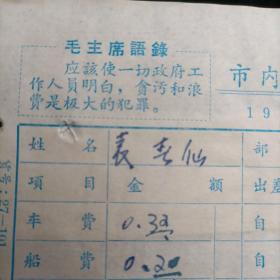 毛主席語錄
應該使一切政府工
作人員明白，貪污和浪
費是极大的犯罪。
市内
19
姓名 袁春仙 部
項目 金額 出差
車費 0.35 自
船費 0.20 自